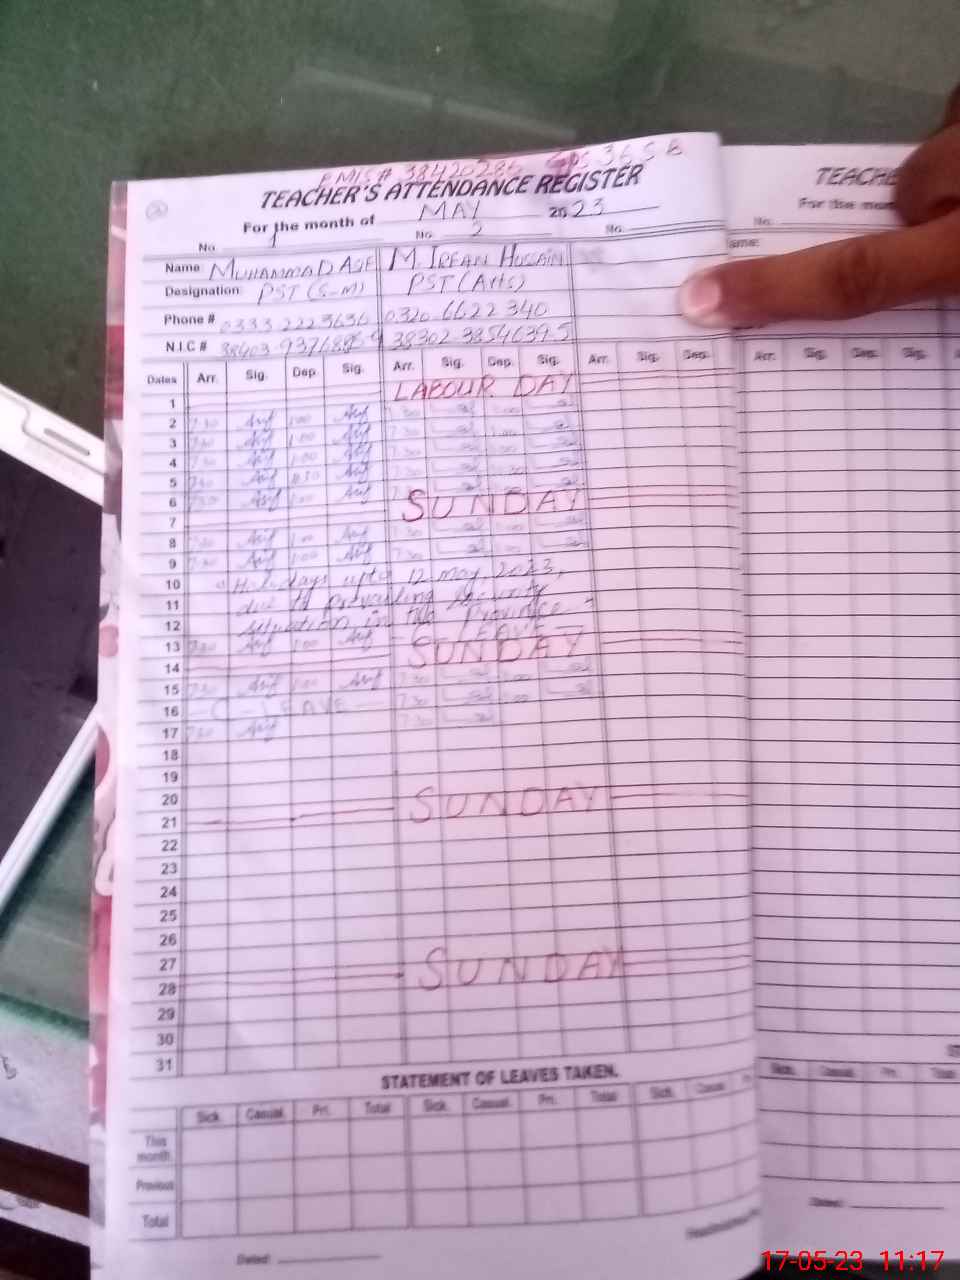 EMIS # 38420286 GPS 36 SB
TEACHER'S ATTENDANCE REGISTER
For the month of MAY 2023
No. 1 No. 2 No.
Name: MUHAMMAD ASIF M. IRFAN HUSSAIN
Designation: PST (S-M) PST (Arts)
Phone # 0333 222 3636 0320 6622 340
N.I.C # 38302-3854639.5
Dates Arr. Sig. Dep. Sig. Arr. Sig. Dep. Sig. Arr. Sig. Dep.
1 LABOUR DAY
2 7:30 Asif 1:00 Asif 7:30
3 7:30 Asif 1:00 Asif 7:30 1:00
4 7:30 Asif 1:00 Asif 7:30 1:00
5 7:30 Asif Asif 7:30
6 7:30 Asif 1:00 Asif
7 SUNDAY
8 7:30 Asif 1:00 Asif 7:30 1:00
9 7:30 Asif 1:00 Asif 7:30 1:00
10 "Holidays upto 12 may, 2023,
11 due to prevailing security
12 situation in the Province."
13 7:30 Asif 1:00 Asif LEAVE
14 SUNDAY
15 7:30 Asif 1:00 Asif 7:30
16 - C - LEAVE - 7:30 1:00
17 7:30 Asif 7:30
18
19
20
21 SUNDAY
22
23
24
25
26
27
28 SUNDAY
29
30
31
STATEMENT OF LEAVES TAKEN.
Sick. Casual. Pri. Total Sick. Casual. Pri. Total Sick. Casual.
This month.
Previous
Total
Dated:
TEACHE
For the mon
No.
ame:
Arr. Sig. Dep. Sig.
ST
Sick. Casual. Pri. Total
Dated:
17-05-23 11:17